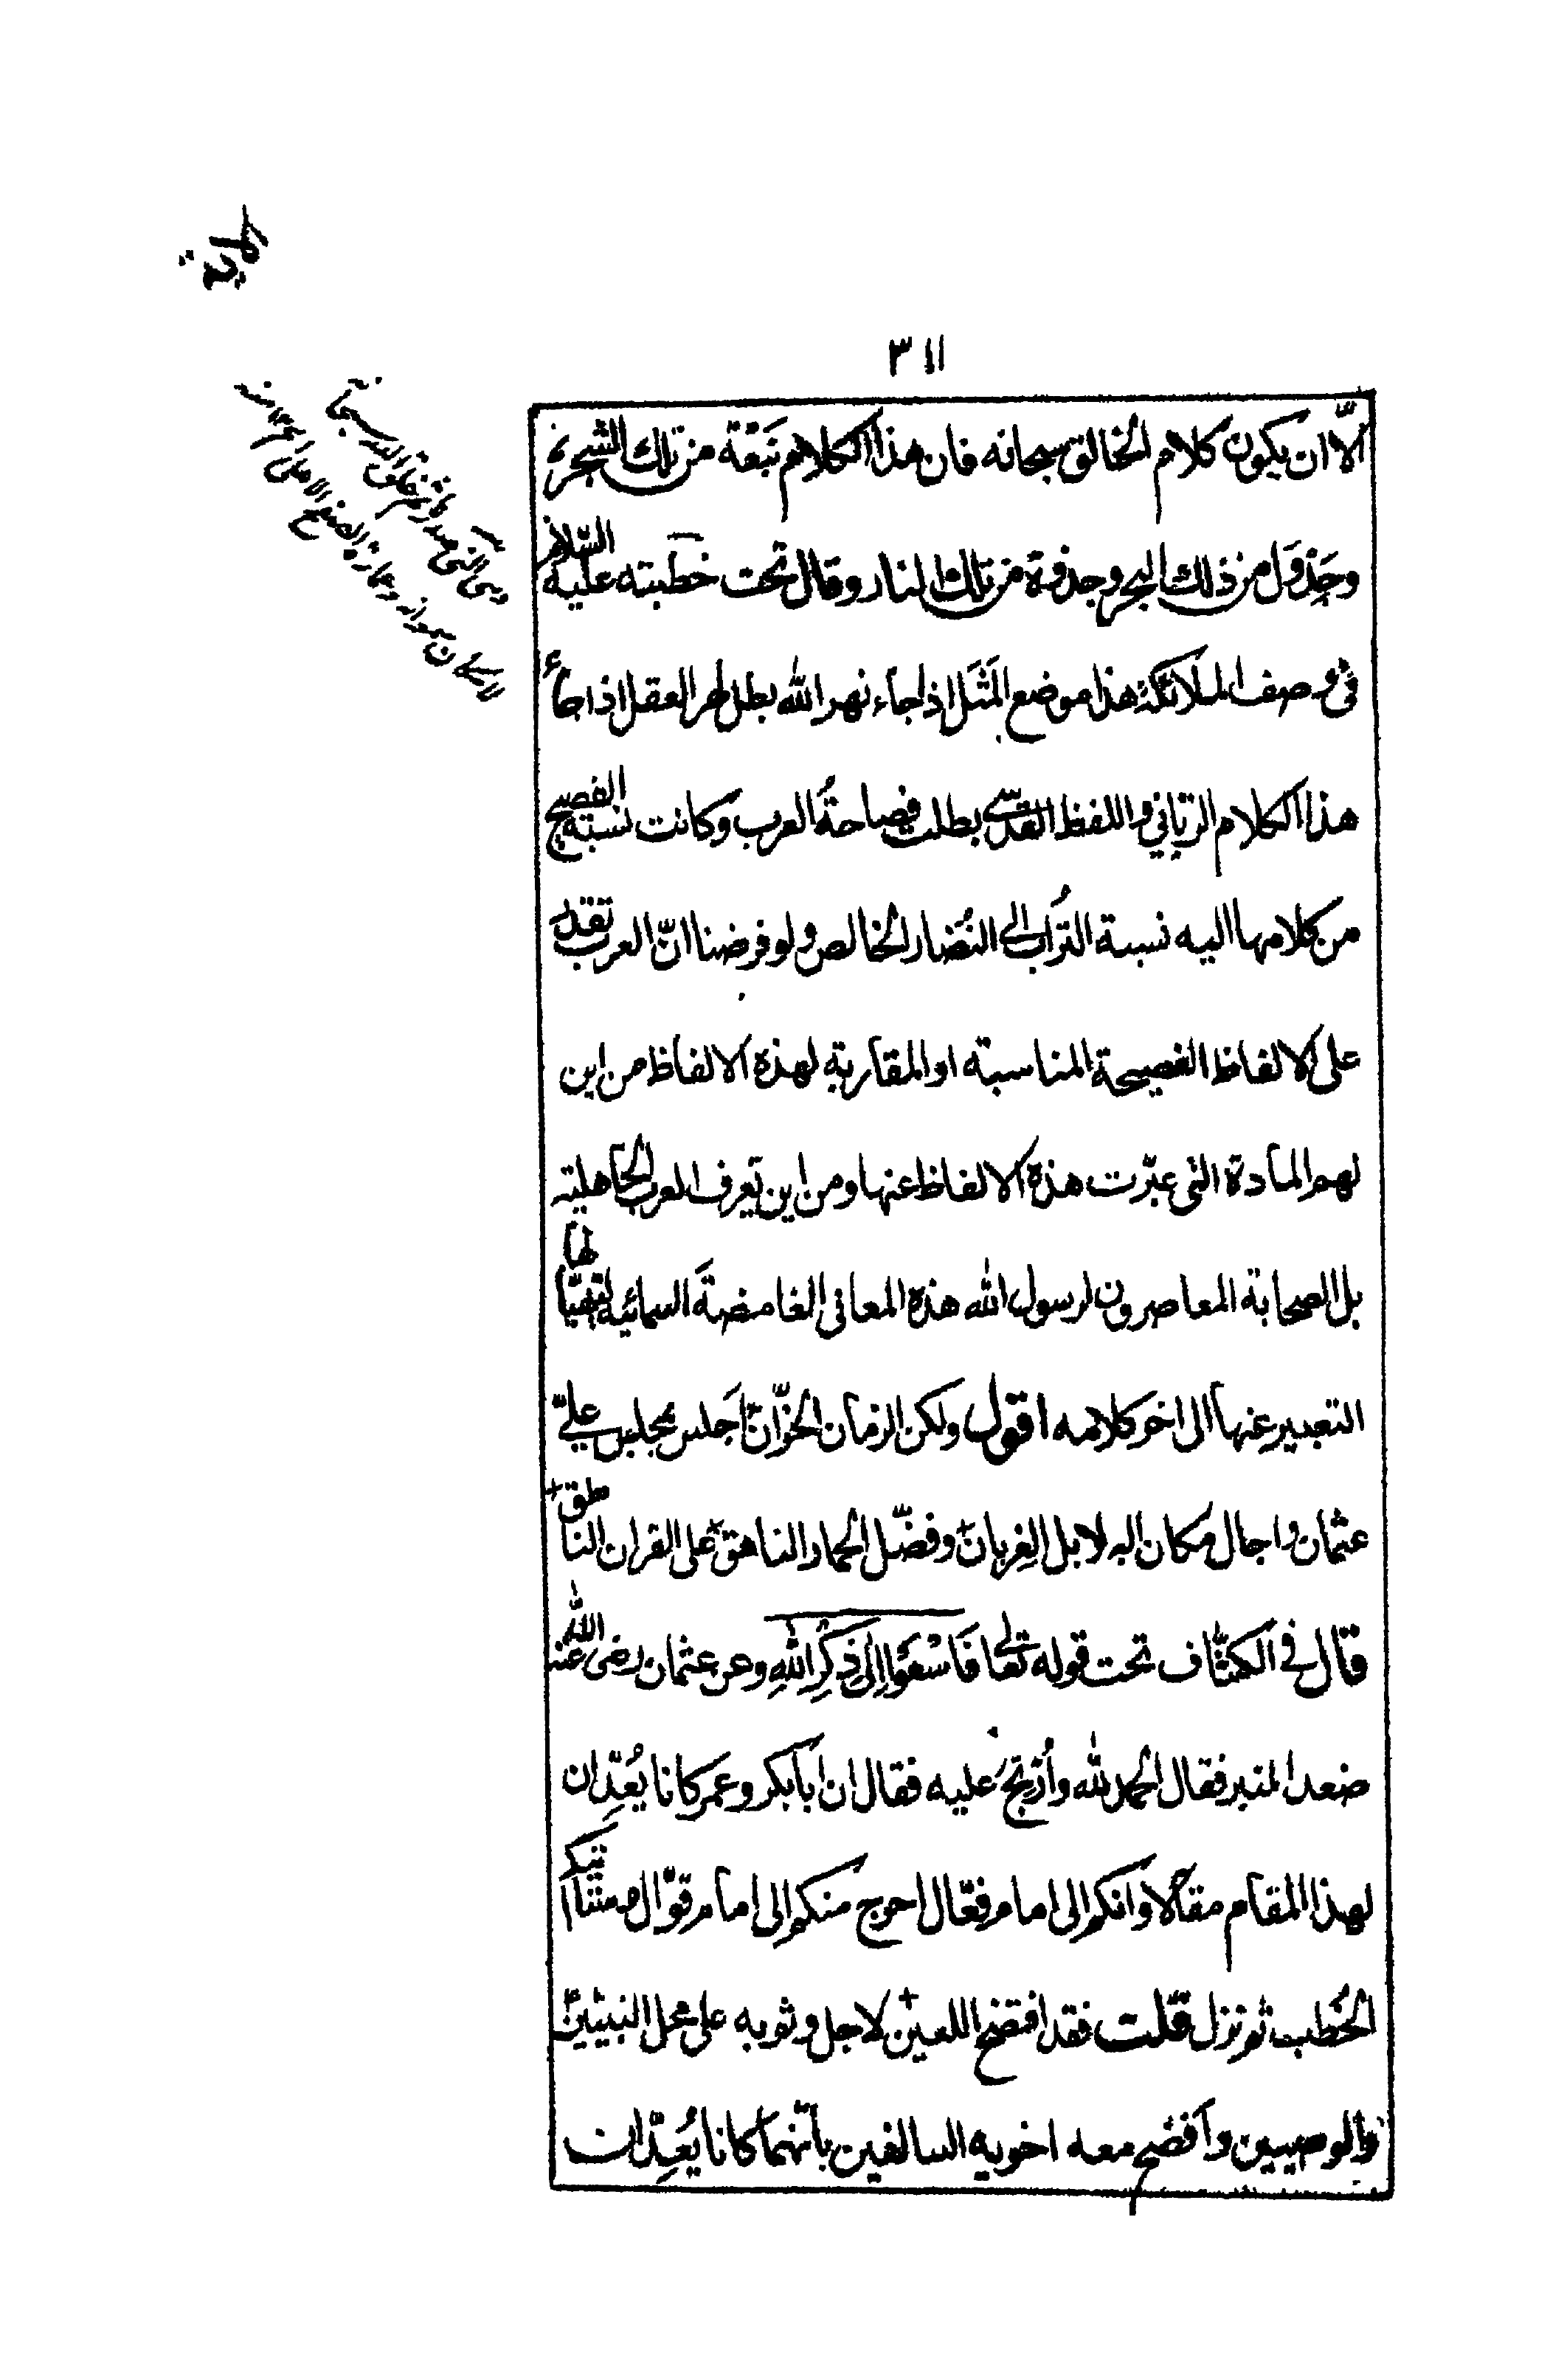 ٣١١
الّا ان يكون كلام الخالق سبحانه فان هذا الكلام نَبَعْة من تلك الشجرة
وجَذوَل من ذلك البحر وجذوة من تلك النار وقال تحت خطبته عليه السّلام
فى وصف الملائكة هذا موضع المَثَل اذا جاء نهر الله بطل نهر العقل اذا جاء
هذا الكلام الربّانى واللفظ القدّسى بطلت فصاحةُ العرب وكانت نسبته الفصيح
من كلامها اليه نسبة التُراب الى النُضار الخالص ولو فرضنا انّ العرب تقدر
على الالفاظ الفصيحة المناسبة او المقاربة لهذه الالفاظ من اين
لهم المادة التى عبّرت هذه الالفاظ عنها ومن اين تعرف العرب الجاهلية
بل الصحابة المعاصرون لرسول الله هذه المعانى الغامضةَ السمائية لتهيّأ لها
التعبير عنها الى اخر كلامه اقول ولكن الزمان الخوّان اَجلس مجلس علىّ
عثمان واجال مكان البلابل الغِربان وفضّل الحمار الناهق على القران الناطق
قال فى الكشّاف تحت قوله تعالى فَاسْعَوْا اِلَى ذِكْرِ اللهِ وعن عثمان رضى الله عنه
صعد المنبر فقال الحمد لله واُرْتِجَ عليه فقال ان اَبابكر وعمر كانا يُعِدّان
لهذا المقام مقالا وانكم الى امام فعّال احوج منكم الى امام قوّال وستأتيكم
الخُطب ثم نزل قلت فقد افتضح اللعين لاجل وثوبه على محل النبيّين
والوصيين وافضح معه اخويه السالفين بانّهما كانا يُعِدّان